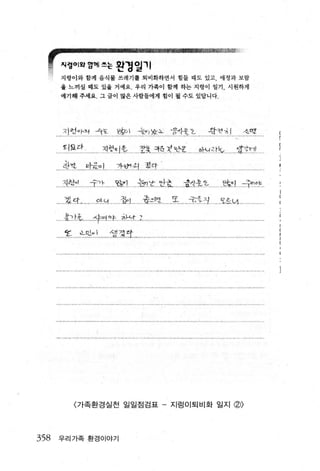 지렁이와 함께 쓰는 환경일기
지렁이와 함께 음식물 쓰레기를 퇴비화하면서 힘들 때도 있고, 애정과 보람
을 느끼실 때도 있을 거예요. 우리 가족이 함께 하는 지렁이 일기, 시원하게
얘기해 주세요. 그 글이 많은 사람들에게 힘이 될 수도 있답니다.
지렁이의 수도 많이 늘어났고 음식물도
되었다. 지렁이를 아니라는 생각에
한결 마음이
지렁이 수가 많이 늘어난 만큼 음식물도 많이 주어야
겠다. 아니 많이 주면 또 모르니
용기를 사야 하나?
또 고민이 생겼다.
〈가족환경실천 일일점검표 - 지렁이퇴비화 일지 ②〉
358 우리가족 환경이야기